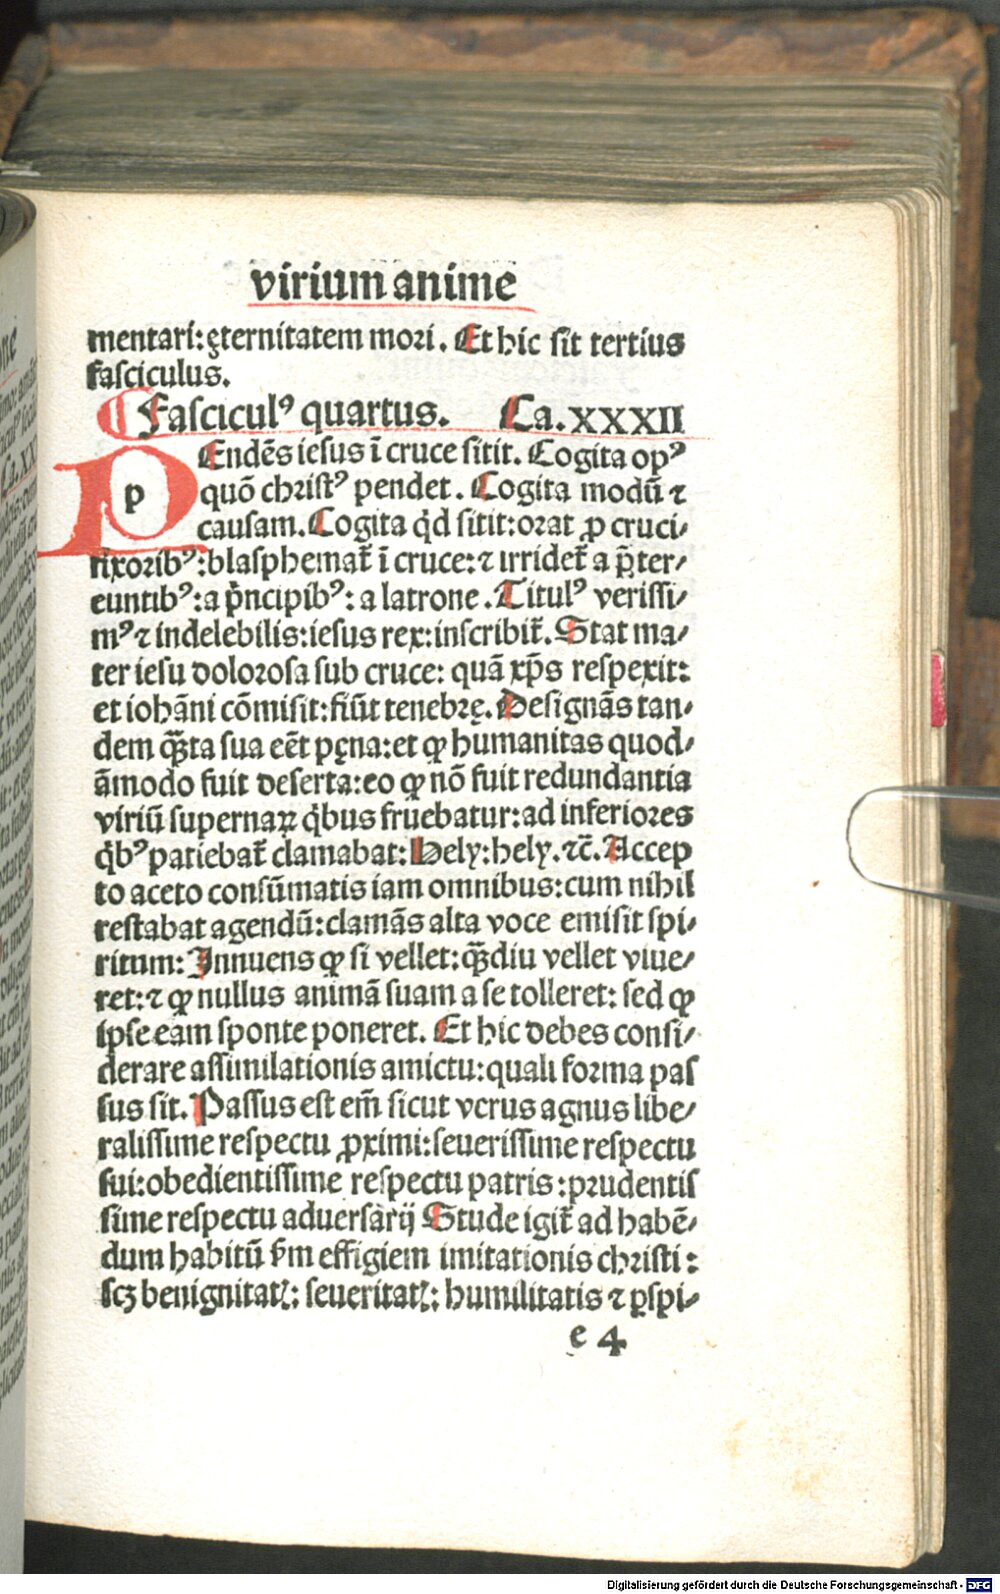 virium anime
mentari: ęternitatem mori. Et hic sit tertius
fasciculus.
Fasciculꝰ quartus. Ca. XXXII
PEndēs iesus ī cruce sitit. Cogita opꝰ
quō christꝰ pendet. Cogita modū ⁊
causam. Cogita qͥd sitit: orat ꝓ cruci⸗
fixoribꝰ: blasphemat᷑ ī cruce: ⁊ irridet᷑ a p̄ter⸗
euntibꝰ: a pͥncipibꝰ: a latrone. Titulꝰ verissi⸗
mꝰ ⁊ indelebilis: iesus rex: inscribit᷑. Stat ma⸗
ter iesu dolorosa sub cruce: quā xp̄s respexit:
et iohāni cōmisit: fiūt tenebrę. Designās tan⸗
dem qͣ̄ta sua eēt pęna: et ꝙ humanitas quod⸗
āmodo fuit deserta: eo ꝙ nō fuit redundantia
viriū supernaꝝ qͥbus fruebatur: ad inferiores
qͥbꝰ patiebat᷑ clamabat: Hely: hely. ⁊c̄. Accep
to aceto consūmatis iam omnibus: cum nihil
restabat agendū: clamās alta voce emisit spi⸗
ritum: Innuens ꝙ si vellet: qͣ̄diu vellet viue⸗
ret: ⁊ ꝙ nullus animā suam a se tolleret: sed ꝙ
ipse eam sponte poneret. Et hic debes consi⸗
derare assimilationis amictu: quali forma pas
sus sit. Passus est em̄ sicut verus agnus libe⸗
ralissime respectu ꝓximi: seuerissime respectu
sui: obedientissime respectu patris: prudentis
sime respectu aduersarij Stude igit᷑ ad habē⸗
dum habitū ẜm effigiem imitationis christi:
scꝫ benignitatꝭ: seueritatꝭ: humilitatis ⁊ ꝑspi⸗
e 4
Digitalisierung gefördert durch die Deutsche Forschungsgemeinschaft - DFG